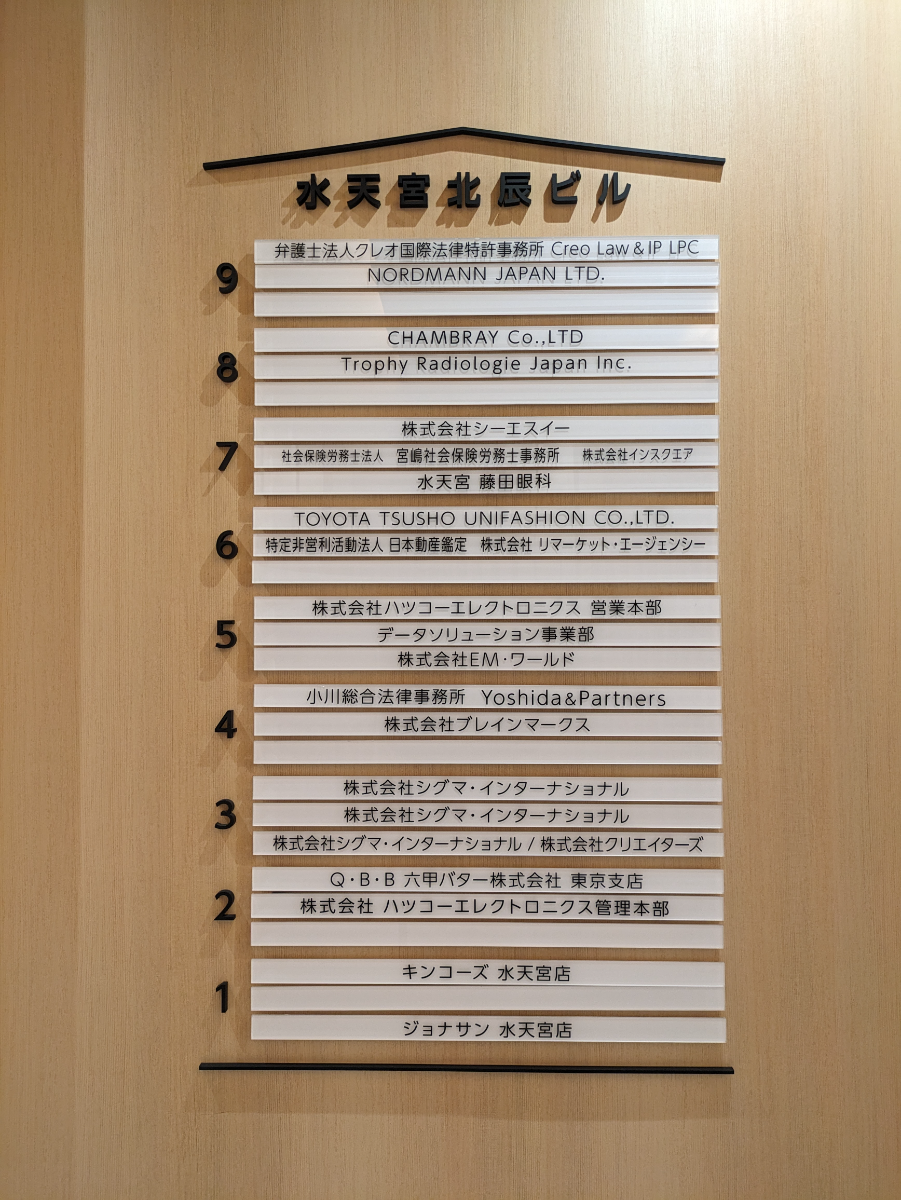 水天宮北辰ビル
9
弁護士法人クレオ国際法律特許事務所 Creo Law & IP LPC
NORDMANN JAPAN LTD.
8
CHAMBRAY Co.,LTD
Trophy Radiologie Japan Inc.
7
株式会社シーエスイー
社会保険労務士法人 宮嶋社会保険労務士事務所 株式会社インスクエア
水天宮 藤田眼科
6
TOYOTA TSUSHO UNIFASHION CO.,LTD.
特定非営利活動法人 日本動産鑑定 株式会社 リマーケット・エージェンシー
5
株式会社ハツコーエレクトロニクス 営業本部
データソリューション事業部
株式会社EM・ワールド
4
小川総合法律事務所 Yoshida&Partners
株式会社ブレインマークス
3
株式会社シグマ・インターナショナル
株式会社シグマ・インターナショナル
株式会社シグマ・インターナショナル / 株式会社クリエイターズ
2
Q・B・B 六甲バター株式会社 東京支店
株式会社 ハツコーエレクトロニクス管理本部
1
キンコーズ 水天宮店
ジョナサン 水天宮店